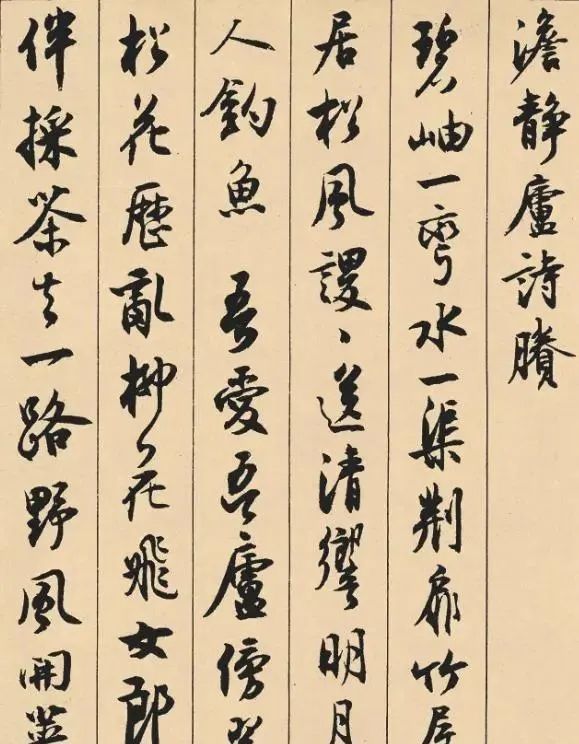 澹静廬詩賸
碧岫一彎水一渠荆扉竹屋
居松風謖〻送清響明月
人釣魚 吾愛吾廬傍
松花歷亂柳花飛女郎
伴採茶去一路野風開